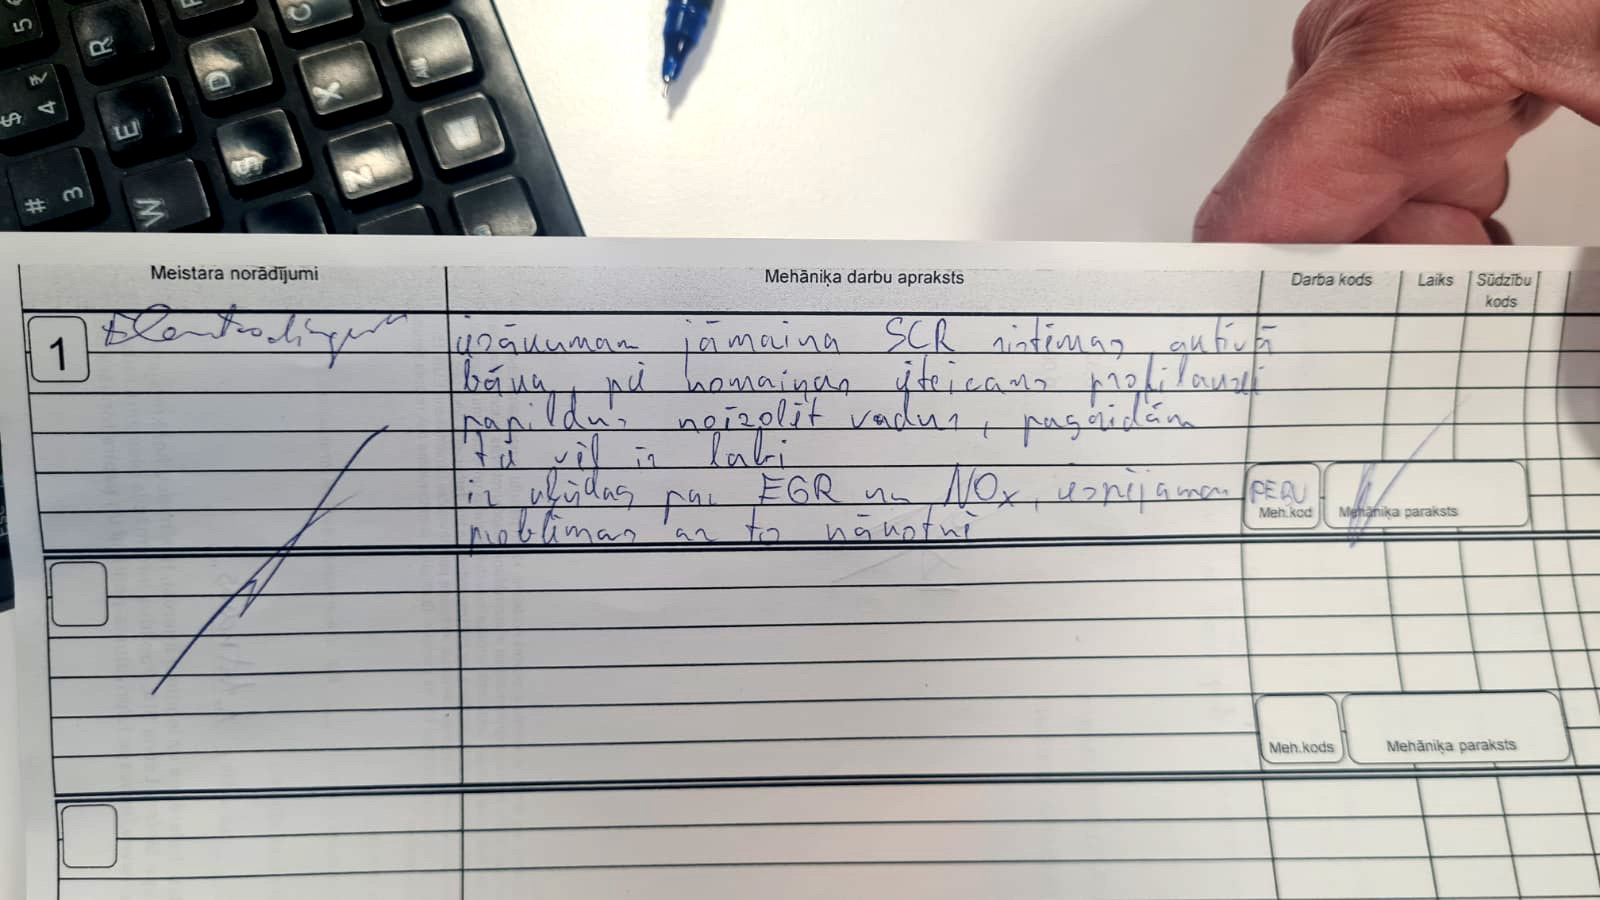 5 R F C
$ 4 ₹ E D X Alt
# 3 W S Z
Meistara norādījumi Mehāniķa darbu apraksts Darba kods Laiks Sūdzību kods
1 iesākumam jāmaina SCR sistēmas
bāka, pie nomaiņas ieteicams
papildus noizolēt vadus, pagaidām
tie vēl ir labi
ir kļūdas par EGR un NOx, iespējamas
problēmas ar to nākotnē
Meh.kod Mehāniķa paraksts
Meh.kods Mehāniķa paraksts